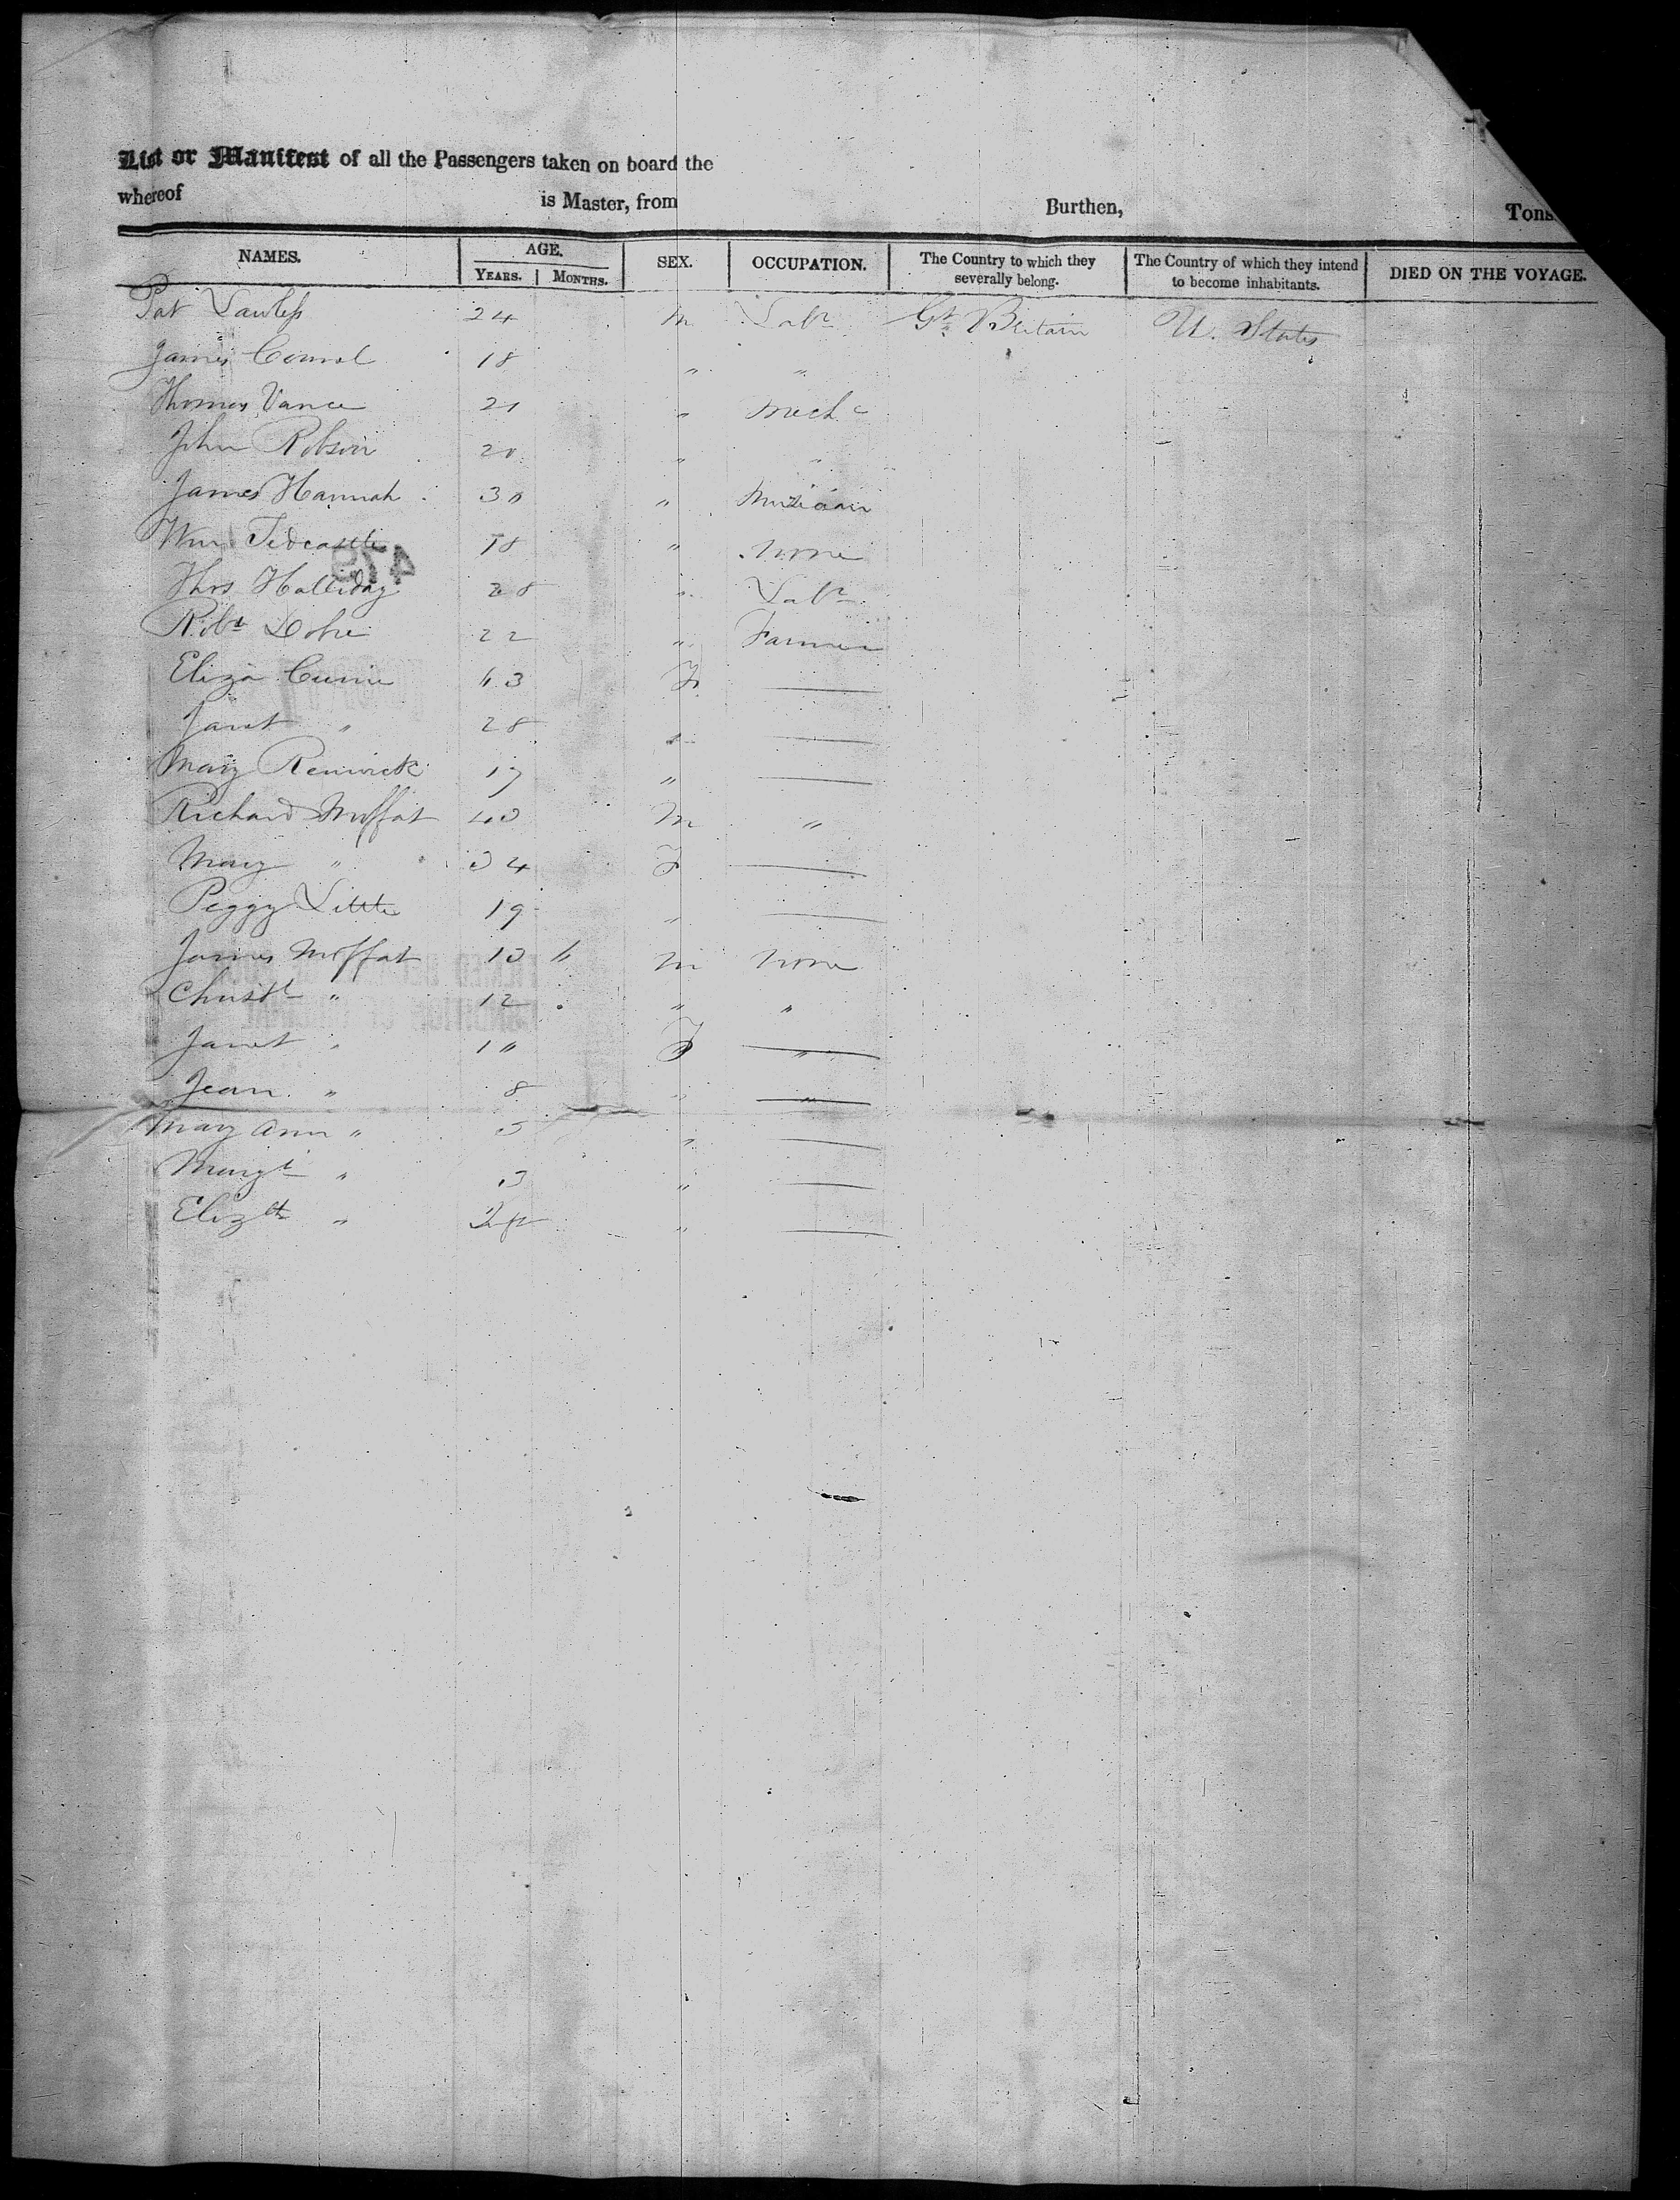 List or Manifest of all the Passengers taken on board the
whereof is Master, from Burthen, Tons
NAMES. AGE. YEARS. MONTHS. SEX. OCCUPATION. The Country to which they severally belong. The Country of which they intend to become inhabitants. DIED ON THE VOYAGE.
Pat Lawless 24 M Labr Gt Britain U. States
James 18 " "
Thomas Vance 21 " Mechc
John Robson 20 " "
James Hannah 30 " Musician
Wm Tedcastle 18 " None
475
Thos Halliday 28 " Labr
Robt Dobie 22 " Farmer
Eliza Currie 43 F
Janet " 28 "
Mary Renwick 17 "
Richard Moffat 40 M "
Mary " 34 F
Peggy Little 19 "
James Moffat 13 " M None
Christr " 12 " "
Janet " 10 F "
Jean " 8 " "
Mary Ann " 5 "
Margt " 3 "
Elizth " "